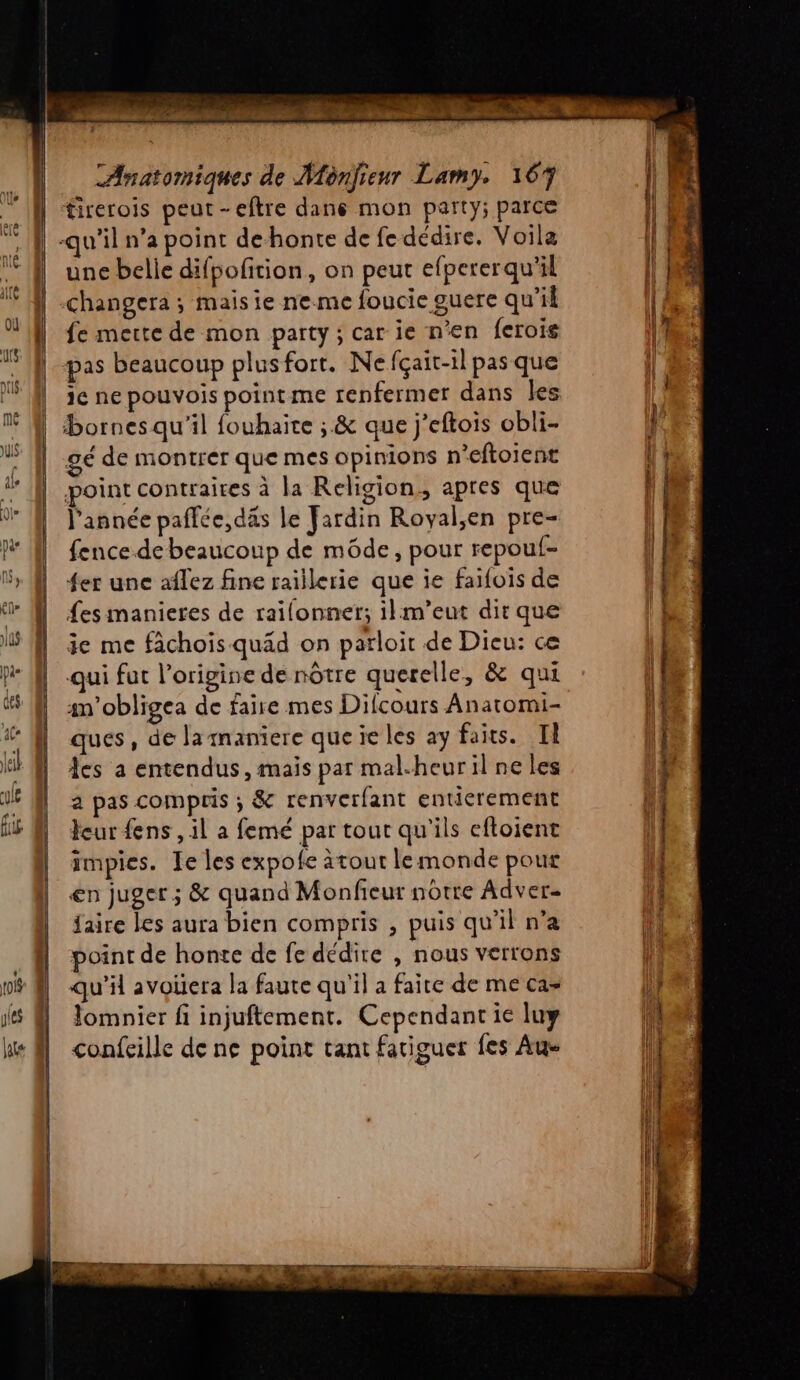 Anatomiques de Monſieur Lamy. 167
tirerois peut-eſtre dans mon party; parce
qu'il n'a point de honte de ſe dédire. Voila
une belle diſpoſition, on peut eſperer qu'il
changera ; mais ie ne me ſoucie guere qu'il
ſe mette de mon party ; car ie n'en ſerois
pas beaucoup plus fort. Ne ſçait-il pas que
ie ne pouvois point me renfermer dans les
bornes qu'il ſouhaite ; & que j'eſtois obli-
gé de montrer que mes opinions n'eſtoient
point contraires à la Religion, apres que
l'année paſſée, dãs le Jardin Royal, en pre-
ſence de beaucoup de mõde, pour repouſ-
ſer une aſſez fine raillerie que ie faiſois de
ſes manieres de raiſonner; il m'eut dit que
ie me fâchois quãd on parloit de Dieu: ce
qui fut l'origine de nôtre querelle, & qui
m'obligea de faire mes Diſcours Anatomi-
ques, de la maniere que ie les ay faits. Il
les a entendus, mais par mal-heur il ne les
a pas compris ; & renverſant entierement
leur ſens, il a ſemé par tout qu'ils eſtoient
impies. Ie les expoſe à tout le monde pour
en juger ; & quand Monſieur nôtre Adver-
ſaire les aura bien compris , puis qu'il n'a
point de honte de ſe dédire , nous verrons
qu'il avoüera la faute qu'il a faite de me ca-
lomnier ſi injuſtement. Cependant ie luy
conſeille de ne point tant fatiguer ſes Au-